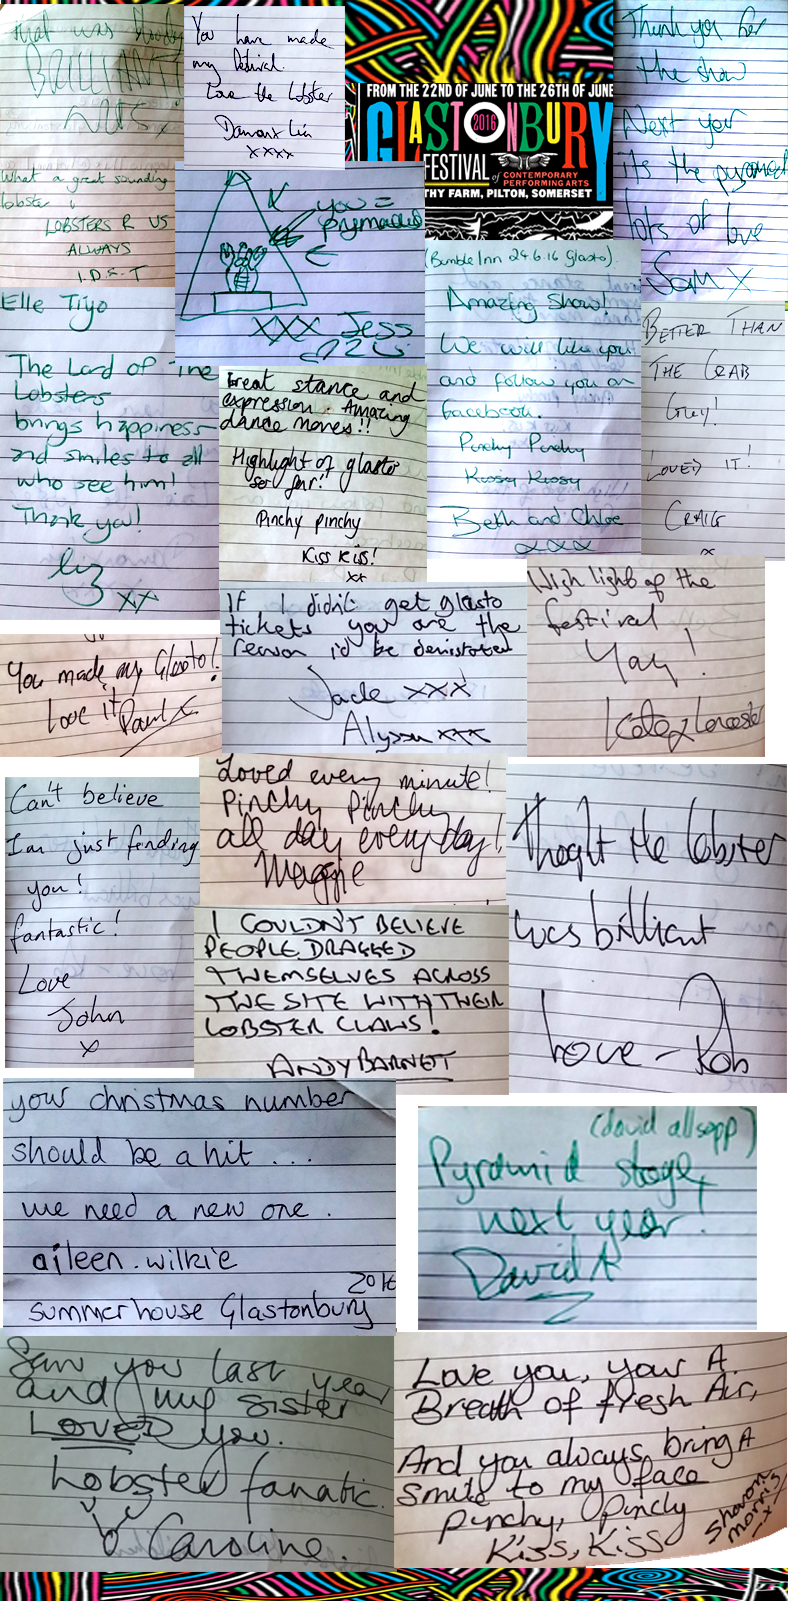 that was bloody
BRILLIANT
NUTS!
What a great sounding
lobster
LOBSTERS R US
ALWAYS
I.D.S.T
You have made
my festival.
Love the lobster
xxxx
FROM THE 22ND OF JUNE TO THE 26TH OF JUNE
GLASTONBURY
2016
FESTIVAL of CONTEMPORARY
PERFORMING ARTS
THY FARM, PILTON, SOMERSET
Thank you for
the show
Next year
its the pyramid
lots of love
Sam x
you =
xxx Jess
Elle Tiyo
The Lord of The
Lobsters
brings happiness
and smiles to all
who see him!
Thank you!
xx
Great stance and
expression. Amazing
dance moves!!
Highlight of glasto
so far!
Pinchy pinchy
Kiss Kiss!
xx
(Bimble Inn 24.6.16 Glasto).
Amazing Show!
We will like you
and follow you on
facebook.
Pinchy Pinchy
Kissy Kissy
Beth and Chloe
xxx
BETTER THAN
THE CRAB
Guy!
LOVED IT!
CRAIG
x
You made my Glasto!
Love it Paul x
If I didn't get glasto
tickets you are the
reason i'd be devistated
Jade xxx
Alyssa xxx
High light of the
festival
Yay!
Kate x Leicester
Can't believe
I'm just finding
you!
fantastic!
Love
John
x
Loved every minute!
Pinchy Pinchy
all day everyday!
Maggie
I COULDN'T BELIEVE
PEOPLE DRAGGED
THEMSELVES ACROSS
THE SITE WITH THEIR
LOBSTER CLAWS!
ANDY BARNET
Thoght the lobster
was brilliant
Love - Rob
your christmas number
should be a hit ...
we need a new one.
aileen.wilkie
2016
summerhouse Glastonbury
(david allsopp)
Pyramid stage,
next year!
David A
Saw you last year
and my sister
LOVED you.
Lobster fanatic.
Caroline.
Love you, your A
Breath of fresh Air,
And you always bring A
smile to my face
Pinchy, Pinchy
Kiss, Kiss
Sharon
Morris
x